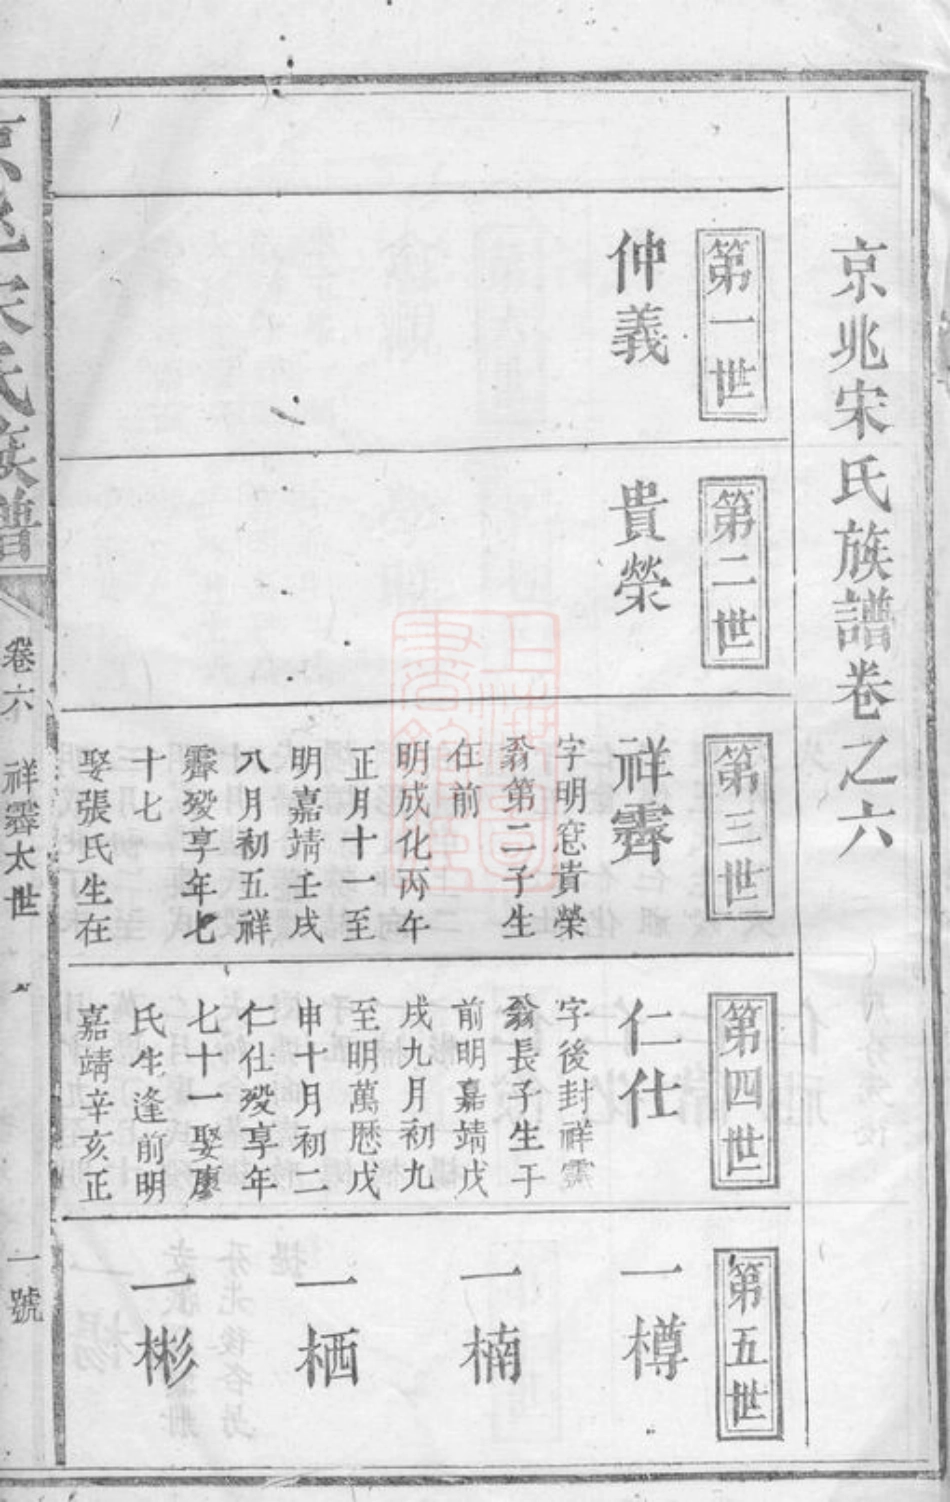 京兆宋氏族譜卷之六
第一世
仲義
第二世
貴榮
第三世
祥霽
字明窓貴榮
翁第二子生
在前
明成化丙午
正月十一至
明嘉靖壬戌
八月初五祥
霽歿享年七
十七
娶張氏生在
第四世
仁仕
字後封祥霽
翁長子生于
前明嘉靖戊
戌九月初九
至明萬歷戊
申十月初二
仁仕歿享年
七十一娶廖
氏生逢前明
嘉靖辛亥正
第五世
一樽
一楠
一栖
一彬
京兆宋氏族譜
卷六
祥霽太世
一號
上海圖書館藏